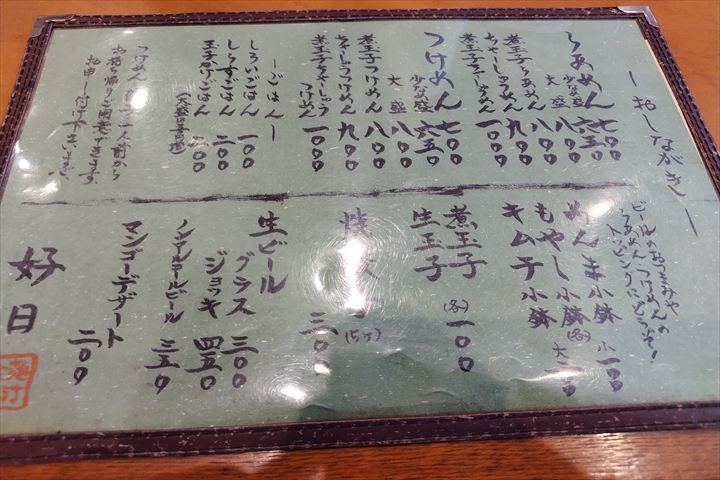 ーおしながきー
らあめん 七〇〇
少な盛 六五〇
大盛 八〇〇
煮玉子らあめん 八〇〇
ちゃーしゅうめん 九〇〇
煮玉子ちゃーしゅうめん 一〇〇〇
つけめん 七〇〇
少な盛 六五〇
大盛 八〇〇
煮玉子つけめん 八〇〇
ちゃーしゅうつけめん 九〇〇
煮玉子ちゃーしゅうつけめん 一〇〇〇
ーごはんー
しろいごはん 一〇〇
しらすごはん 二〇〇
玉子かけごはん 二〇〇
つけめん
人前から
お持ち帰りご用意できます
お申し付け下さいませ
ビールのおつまみや
らあめん、つけめんの
トッピングにどうぞ!
めんま小鉢 小一〇〇
もやし小鉢 (各)
キムチ小鉢 大
煮玉子
生玉子 (各) 一〇〇
(5ケ) 三〇〇
生ビール
グラス 三〇〇
ジョッキ 四五〇
ノンアルコールビール 三五〇
マンゴーデザート 二〇〇
好日